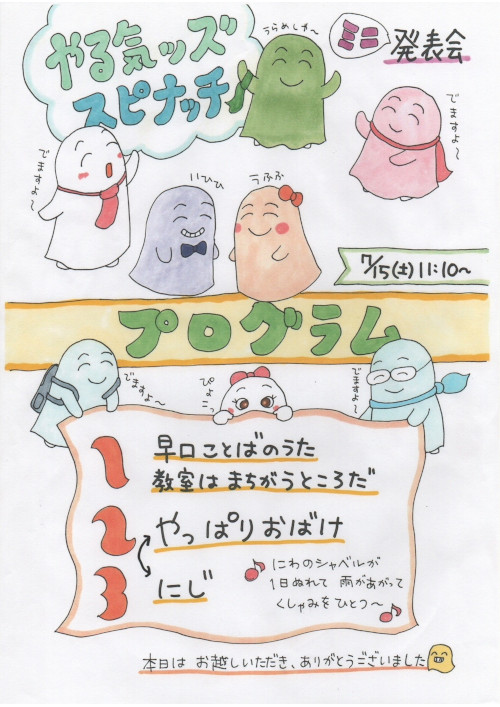 やる気ッズ
スピナッチ
うらめしや〜
ミニ
発表会
でますよ〜
でますよ〜
いひひ
うふふ
7/15(土)11:10〜
プログラム
でますよ〜
ぴょこっ
でますよ〜
1 早口ことばのうた
教室はまちがうところだ
2 やっぱりおばけ
3 にじ
にわのシャベルが
1日ぬれて 雨があがって
くしゃみをひとつ〜
本日は お越しいただき、ありがとうございました